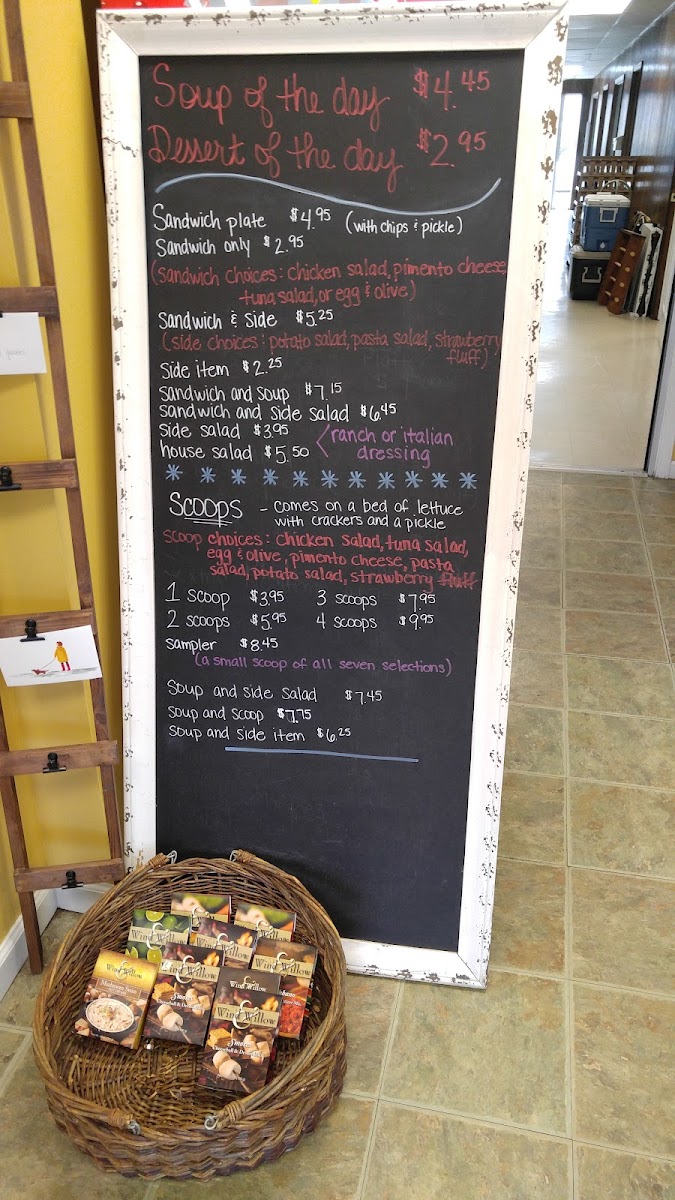 Soup of the day $4.45
Dessert of the day $2.95
Sandwich plate $4.95 (with chips & pickle)
Sandwich only $2.95
(sandwich choices: chicken salad, pimento cheese,
tuna salad, or egg & olive)
Sandwich & side $5.25
(side choices: potato salad, pasta salad, strawberry
fluff)
Side item $2.25
sandwich and soup $7.15
sandwich and side salad $6.45
side salad $3.95
house salad $5.50
ranch or italian
dressing
Scoops - comes on a bed of lettuce
with crackers and a pickle
scoop choices: chicken salad, tuna salad,
egg & olive, pimento cheese, pasta
salad, potato salad, strawberry fluff
1 scoop $3.95 3 scoops $7.95
2 scoops $5.95 4 scoops $9.95
sampler $8.45
(a small scoop of all seven selections)
Soup and side salad $7.45
soup and scoop $7.75
soup and side item $6.25
Wind & Willow
Wind & Willow
Wind & Willow
Wind & Willow
S'mores
Wind & Willow
S'mores
Cheeseball & Dessert Mix